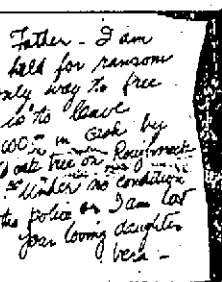 Father - I am
held for ransom
only way to free
is to leave
in cash by
oak tree on
Under no condition
the police or I am lost
your loving daughter
Vera -